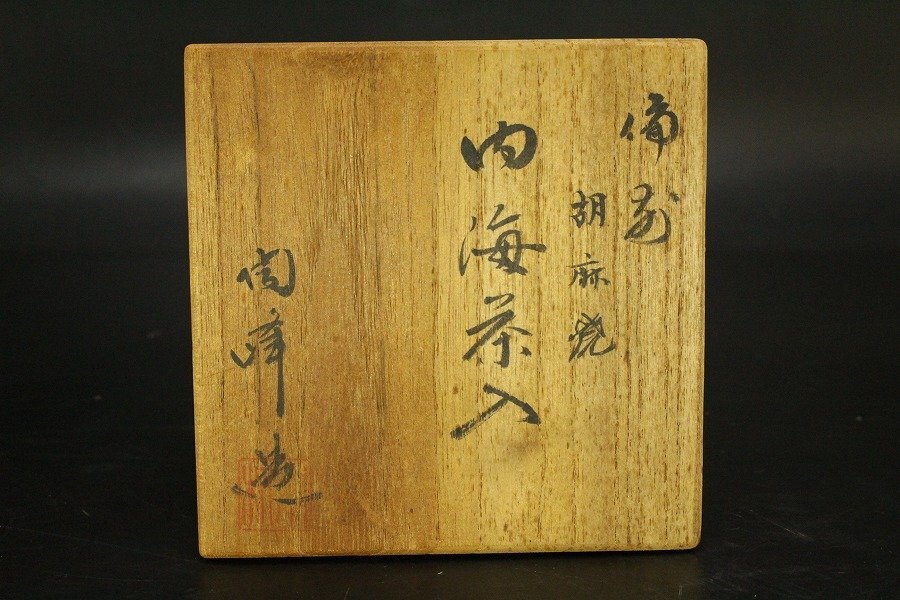 備前
胡麻焼
内海茶入
陶峰造